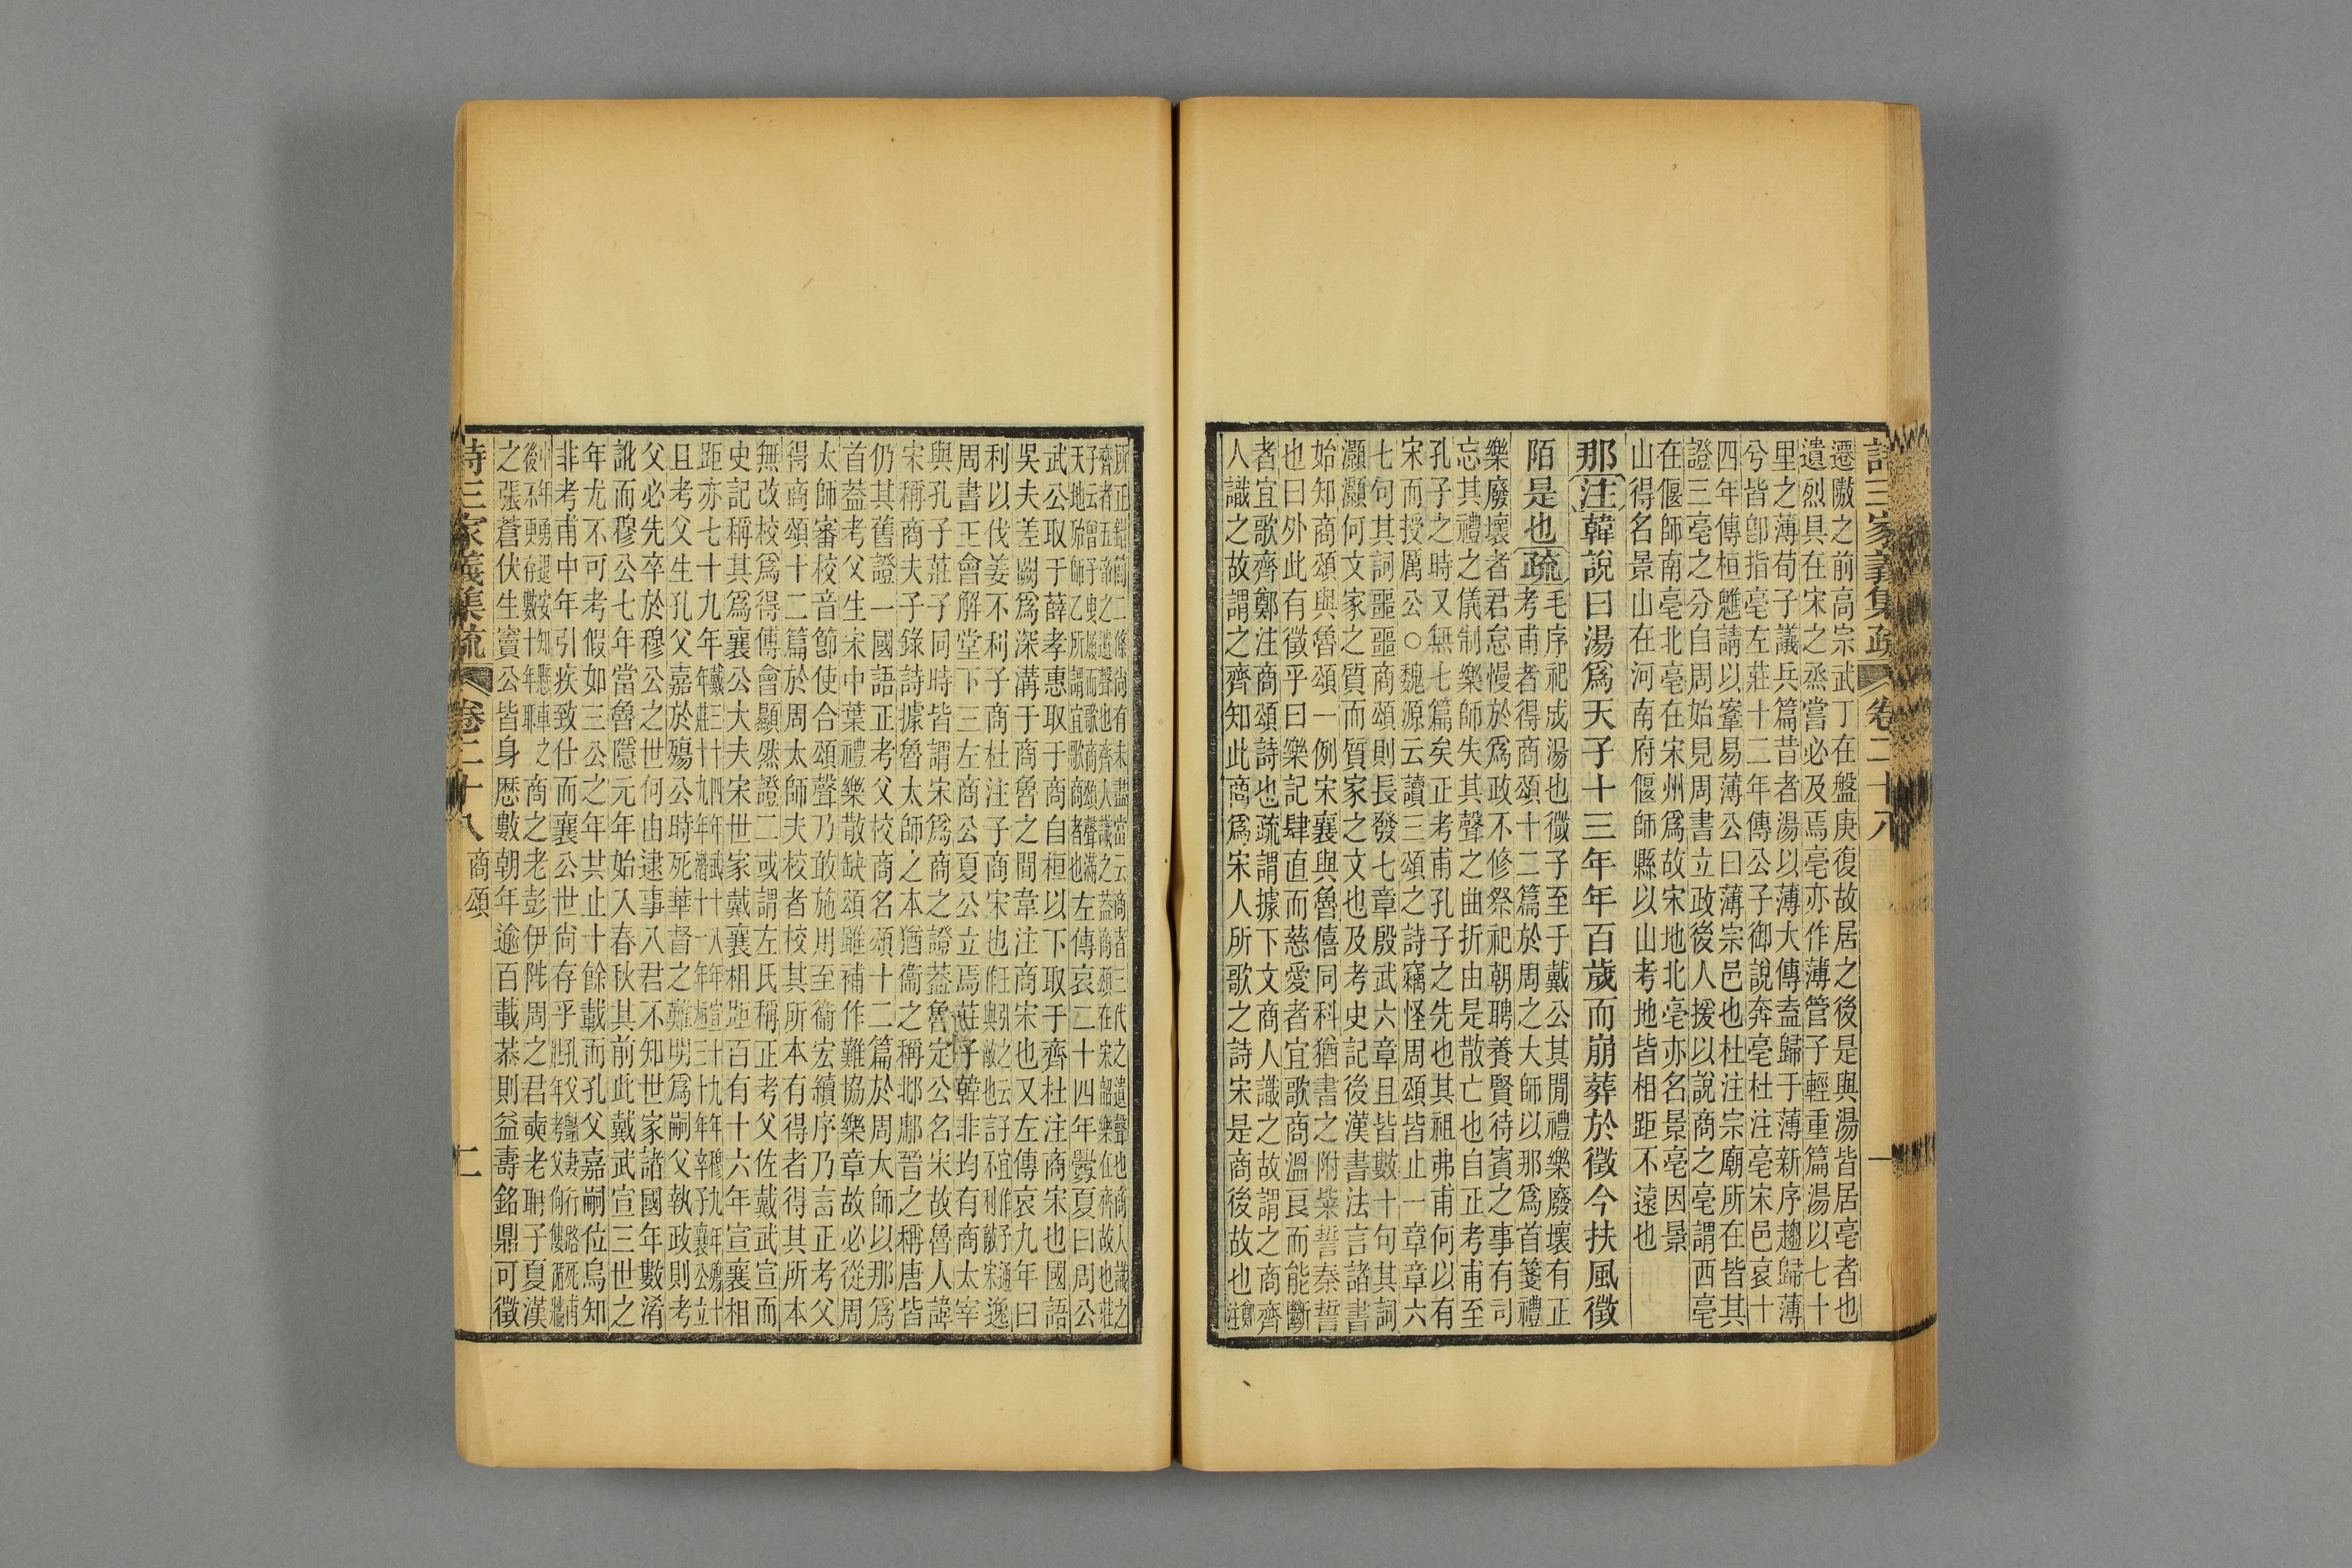 詩三家義集疏 卷二十八
遷敖之前高宗武丁在盤庚復故居之後是與湯皆居亳者也
遺烈具在宋之烝嘗必及焉亳亦作薄管子輕重篇湯以七十
里之薄荀子議兵篇昔者湯以薄大傳盍歸于薄新序趣歸薄
兮皆卽指亳左莊十二年傳公子御說奔亳杜注亳宋邑哀十
四年傳桓魋請以鞌易薄公曰薄宗邑也杜注宗廟所在皆其
證三亳之分自周始見周書立政後人援以說商之亳謂西亳
在偃師南亳北亳在宋州爲故宋地北亳亦名景亳因景
山得名景山在河南府偃師縣以山考地皆相距不遠也
那注韓說曰湯爲天子十三年年百歲而崩葬於徵今扶風徵
陌是也疏毛序祀成湯也微子至于戴公其閒禮樂廢壞有正
考甫者得商頌十二篇於周之大師以那爲首箋禮
樂廢壞者君怠慢於爲政不修祭祀朝聘養賢待賓之事有司
忘其禮之儀制樂師失其聲之曲折由是散亡也自正考甫至
孔子之時又無七篇矣正考甫孔子之先也其祖弗甫何以有
宋而授厲公○魏源云讀三頌之詩竊怪周頌皆止一章章六
七句其詞噩噩商頌則長發七章殷武六章且皆數十句其詞
灝灝何文家之質而質家之文也及考史記後漢書法言諸書
始知商頌與魯頌一例宋襄與魯僖同科猶書之附柴誓秦誓
也曰外此有徵乎曰樂記肆直而慈愛者宜歌商溫良而能斷
者宜歌齊鄭注商頌詩也疏謂據下文商人識之故謂之商齊
人識之故謂之齊知此商爲宋人所歌之詩宋是商後故也鄭
注
所正錯簡二條尚有未盡當云商者三代之遺聲也商人識之
齊者五帝之遺聲也齊人識之蓋商頌在宋韶樂在齊故也莊
子云曾子曳屣而歌商頌聲滿
天地殆師乙所謂宜歌商者也左傳哀二十四年釁夏曰周公
武公取于薛孝惠取于商自桓以下取于齊杜注商宋也國語
吳夫差闕爲深溝于商魯之間韋注商宋也又左傳哀九年曰
利以伐姜不利子商杜注子商宋也
周書王會解堂下三左商公夏公立焉莊子韓非均有商太宰
與孔子莊子同時皆謂宋爲商之證蓋魯定公名宋故魯人諱
宋稱商夫子錄詩據魯太師之本猶衞之稱邶鄘晉之稱唐皆
仍其舊證一國語正考父校商名頌十二篇於周大師以那爲
首葢考父生宋中葉禮樂散缺頌雖補作難協樂章故必從周
太師審校音節使合頌聲乃敢施用至衞宏續序乃言正考父
得商頌十二篇於周太師夫校者校其所本有得者得其所本
無改校爲得傅會顯然證二或謂左氏稱正考父佐戴武宣而
史記稱其爲襄公大夫宋世家戴襄相距百有十六年宣襄相
距亦七十九年
且考父生孔父嘉於殤公時死華督之難明爲嗣父執政則考
父必先卒於穆公之世何由逮事八君不知世家諸國年數淆
訛而穆公七年當魯隱元年始入春秋其前此戴武宣三世之
年尤不可考假如三公之年共止十餘載而孔父嘉嗣位烏知
非考甫中年引疾致仕而襄公世尚存乎
商之老彭伊陟周之君奭老聃子夏漢
之張蒼伏生竇公皆身歷數朝年逾百載恭則益壽銘鼎可徵
詩三家義集疏 卷二十八 商頌 二